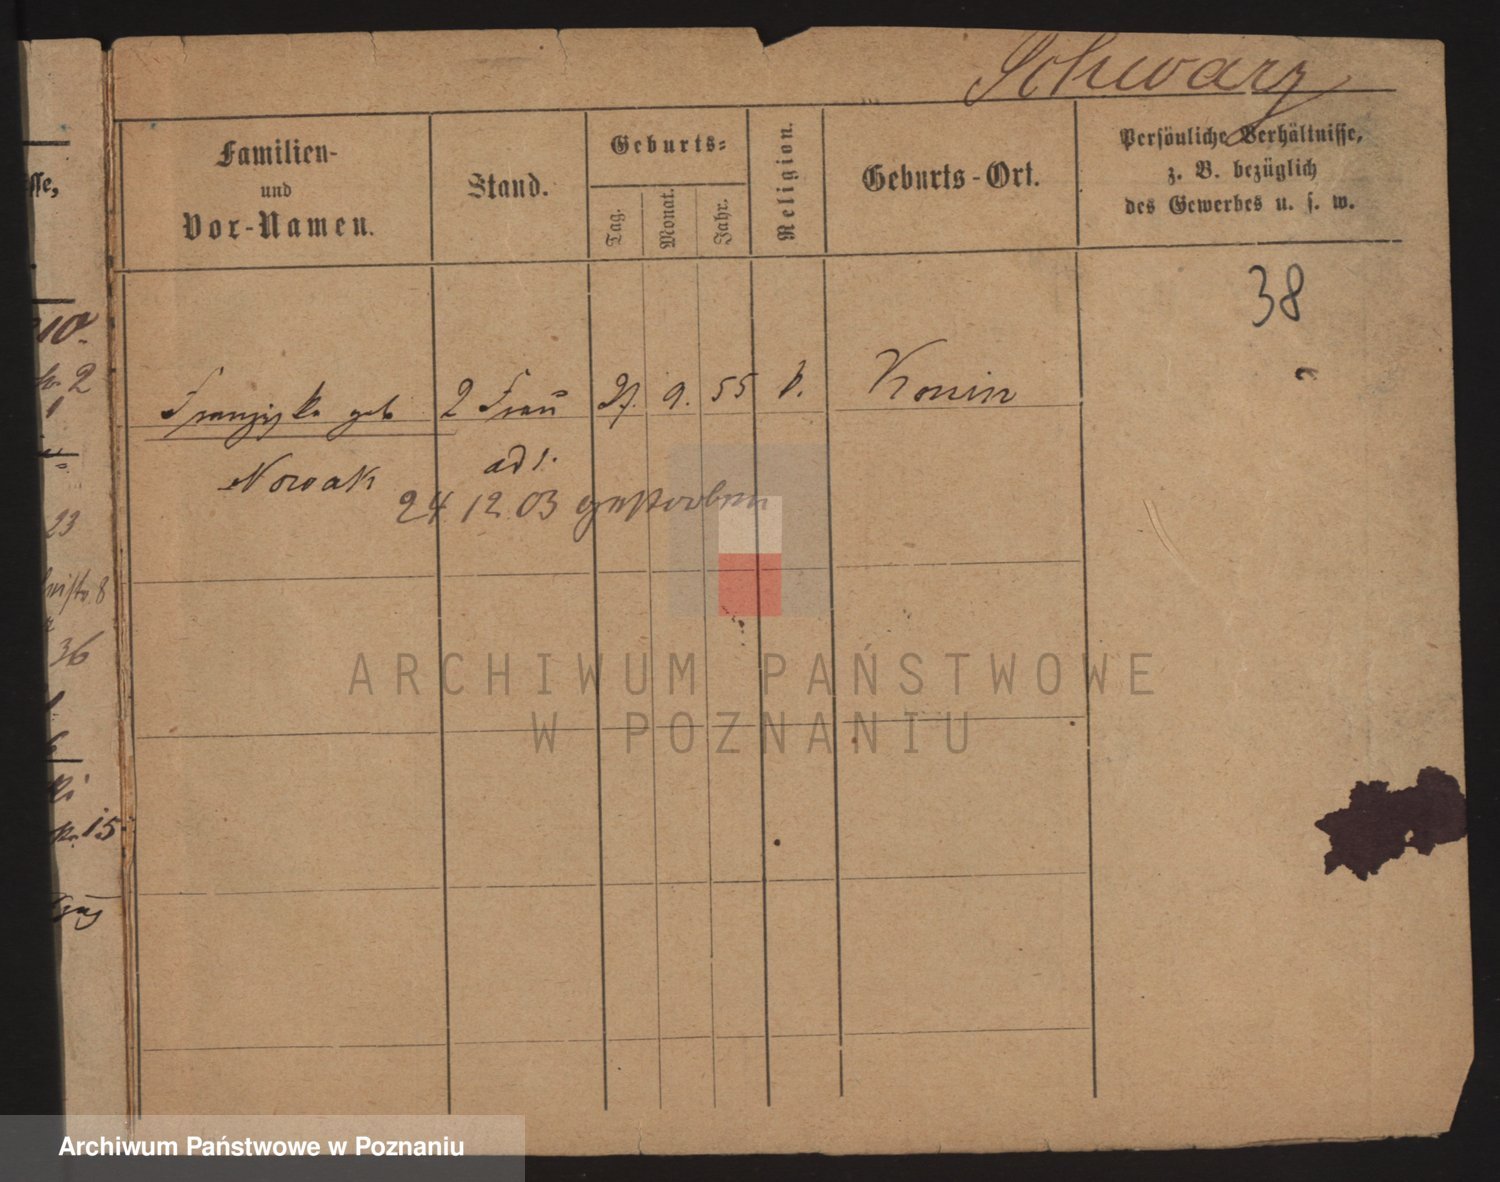 Schwarz
Familien-
und
Vor-Namen.
Stand.
Geburts-
Tag.
Monat.
Jahr.
Religion.
Geburts-Ort.
Persönliche Verhältnisse,
z. B. bezüglich
des Gewerbes u. s. w.
sse,
38
Franziska geb 2 Frau 27. 9. 55 k. Konin
Nowak
24 12. 03 gestorben
10.
2
23
8
36
15
ARCHIWUM PAŃSTWOWE
W POZNANIU
Archiwum Państwowe w Poznaniu